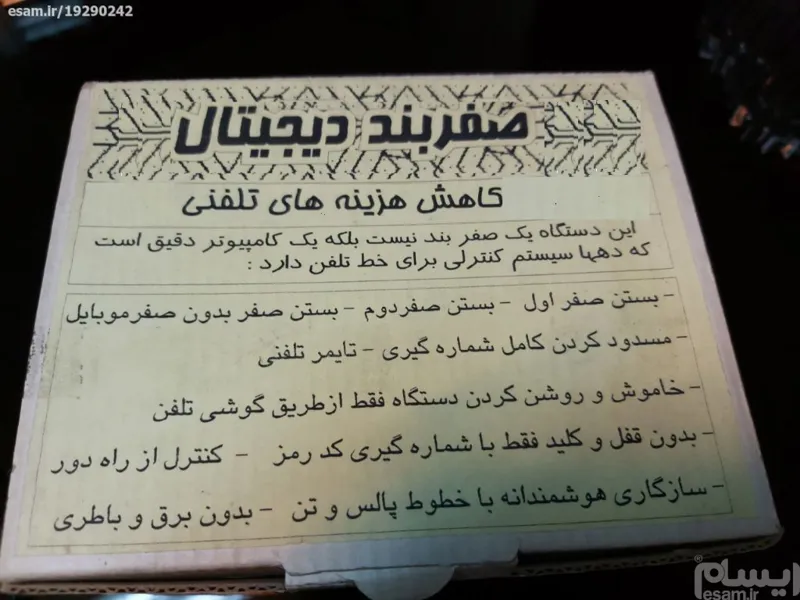 esam.ir/19290242
صفربند دیجیتال
کاهش هزینه های تلفنی
این دستگاه یک صفر بند نیست بلکه یک کامپیوتر دقیق است
که دهها سیستم کنترلی برای خط تلفن دارد :
- بستن صفر اول - بستن صفردوم - بستن صفر بدون صفرموبایل
- مسدود کردن کامل شماره گیری - تایمر تلفنی
- خاموش و روشن کردن دستگاه فقط ازطریق گوشی تلفن
- بدون قفل و کلید فقط با شماره گیری کد رمز - کنترل از راه دور
- سازگاری هوشمندانه با خطوط پالس و تن - بدون برق و باطری
ایسام®
esam.ir